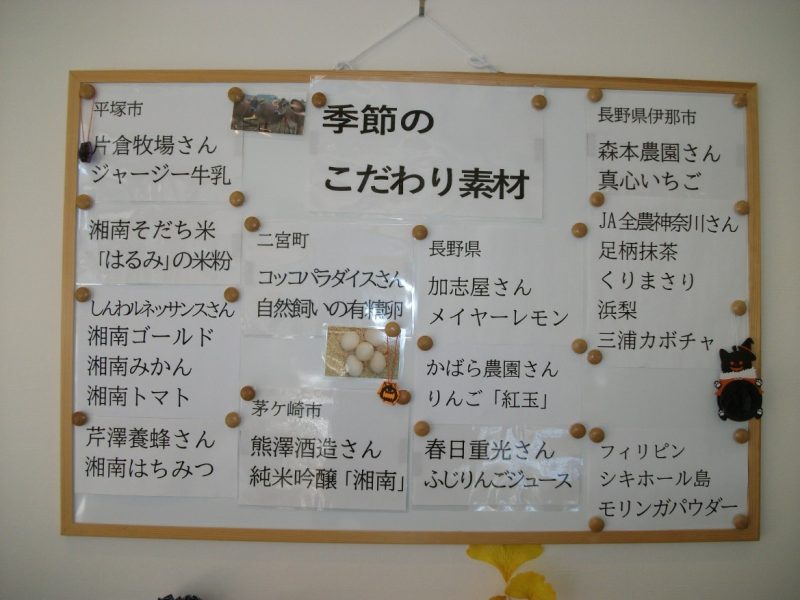 季節の
こだわり素材
平塚市
片倉牧場さん
ジャージー牛乳
湘南そだち米
「はるみ」の米粉
しんわルネッサンスさん
湘南ゴールド
湘南みかん
湘南トマト
芹澤養蜂さん
湘南はちみつ
二宮町
コッコパラダイスさん
自然飼いの有精卵
茅ケ崎市
熊澤酒造さん
純米吟醸「湘南」
長野県
加志屋さん
メイヤーレモン
かばら農園さん
りんご「紅玉」
春日重光さん
ふじりんごジュース
長野県伊那市
森本農園さん
真心いちご
JA全農神奈川さん
足柄抹茶
くりまさり
浜梨
三浦カボチャ
フィリピン
シキホール島
モリンガパウダー